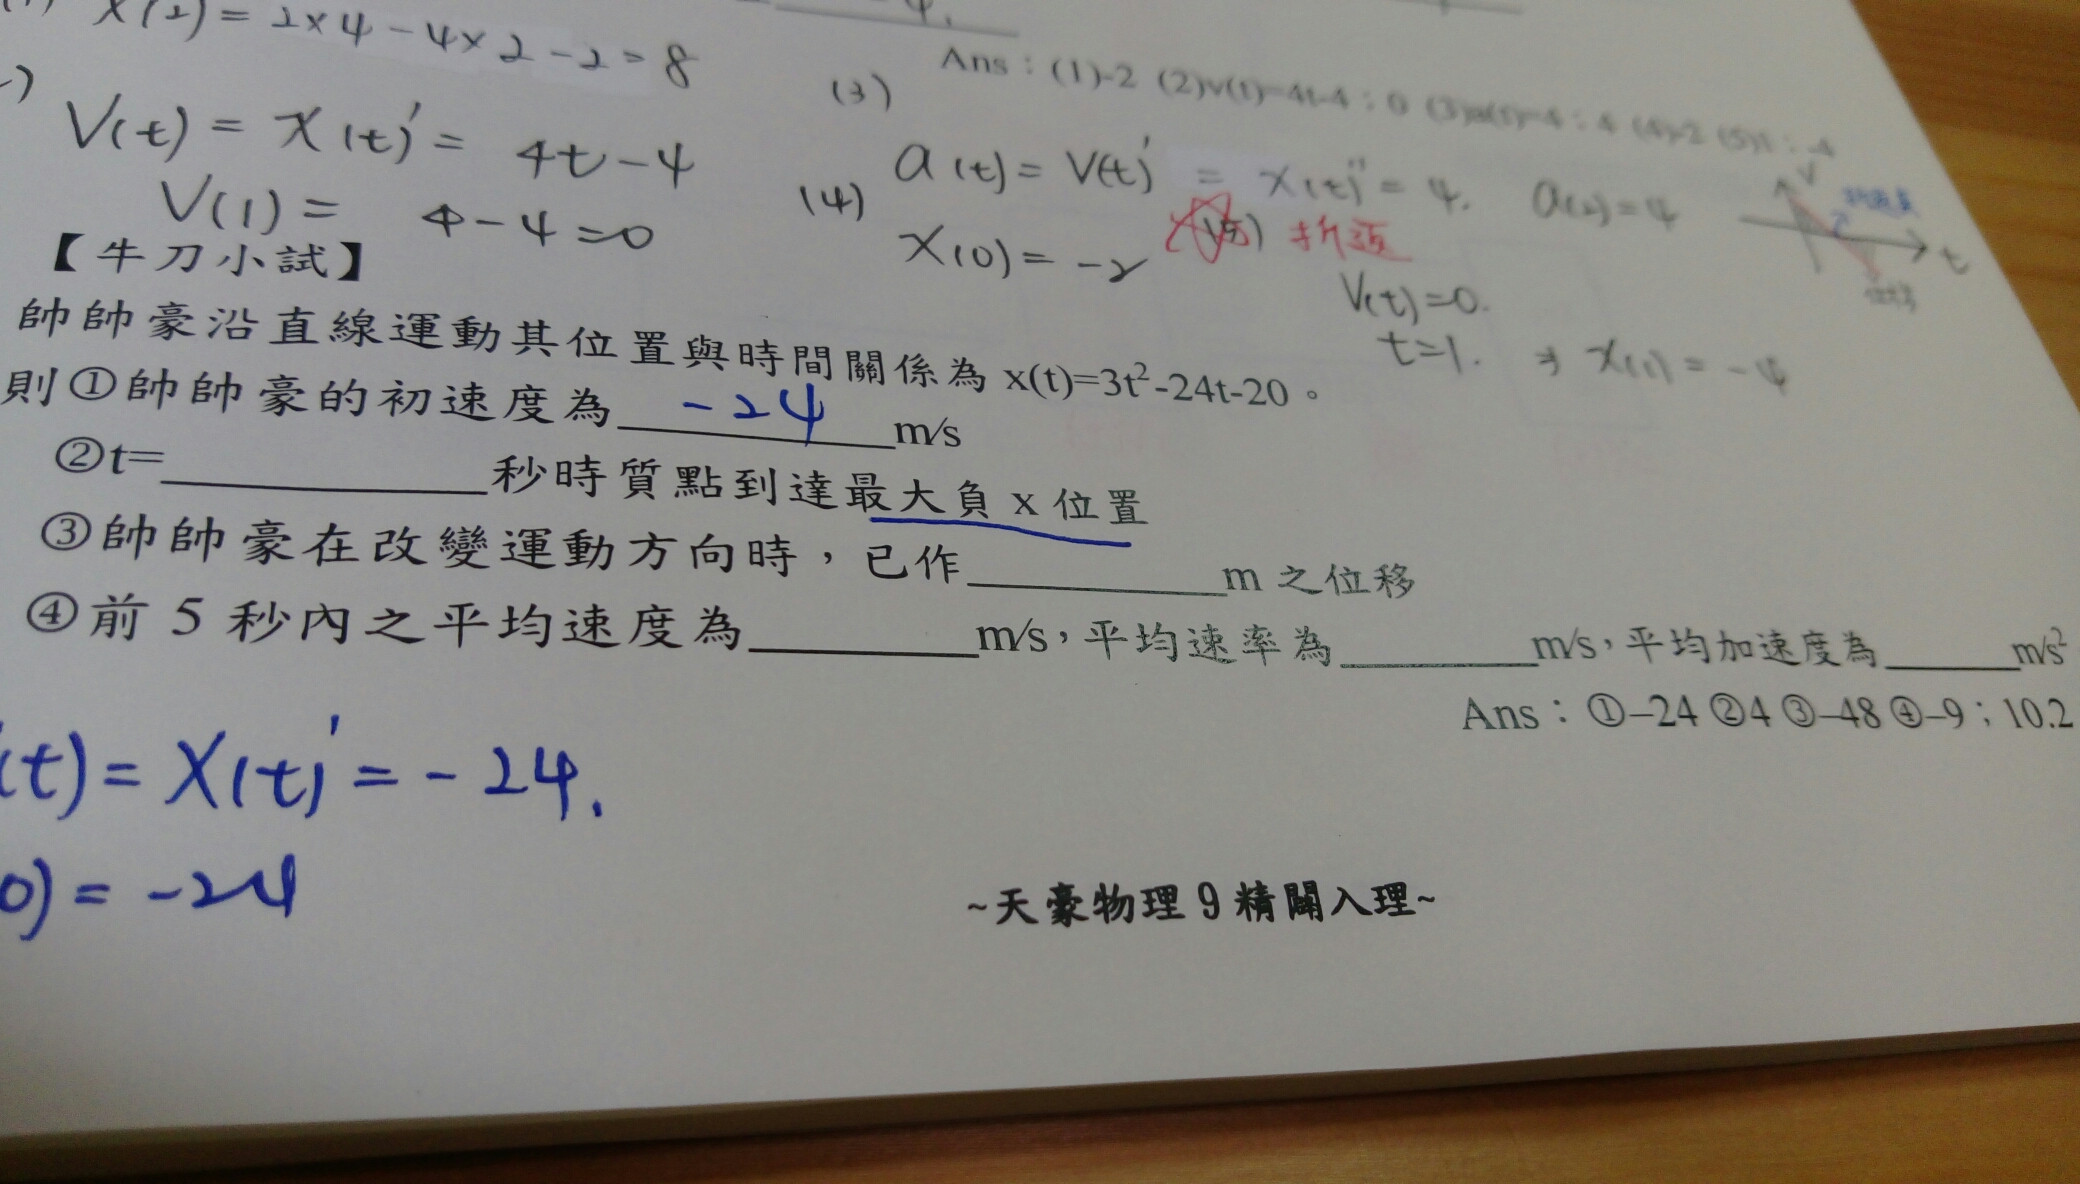 X(2) = 2×4-4×2-2=8
Ans：(1)-2 (2)v(t)=4t-4；0 (3)a(t)=4；4 (4)-2 (5)1；-4
V(t) = X(t)' = 4t-4
V(1) = 4-4=0
(3)
a(t) = V(t)' = X(t)'' = 4. a(2)=4
(4)
X(0) = -2
(5) 折返
V(t)=0.
t=1. ⇒ X(1) = -4
V
t
【牛刀小試】
帥帥豪沿直線運動其位置與時間關係為 x(t)=3t²-24t-20。
則①帥帥豪的初速度為 -24 m/s
②t=__________秒時質點到達最大負 x 位置
③帥帥豪在改變運動方向時，已作________m 之位移
④前 5 秒內之平均速度為_______m/s，平均速率為______m/s，平均加速度為____m/s²
Ans：①–24 ②4 ③–48 ④–9；10.2
(t) = X(t)' = -24.
0) = -24
~天豪物理 9 精闢入理~